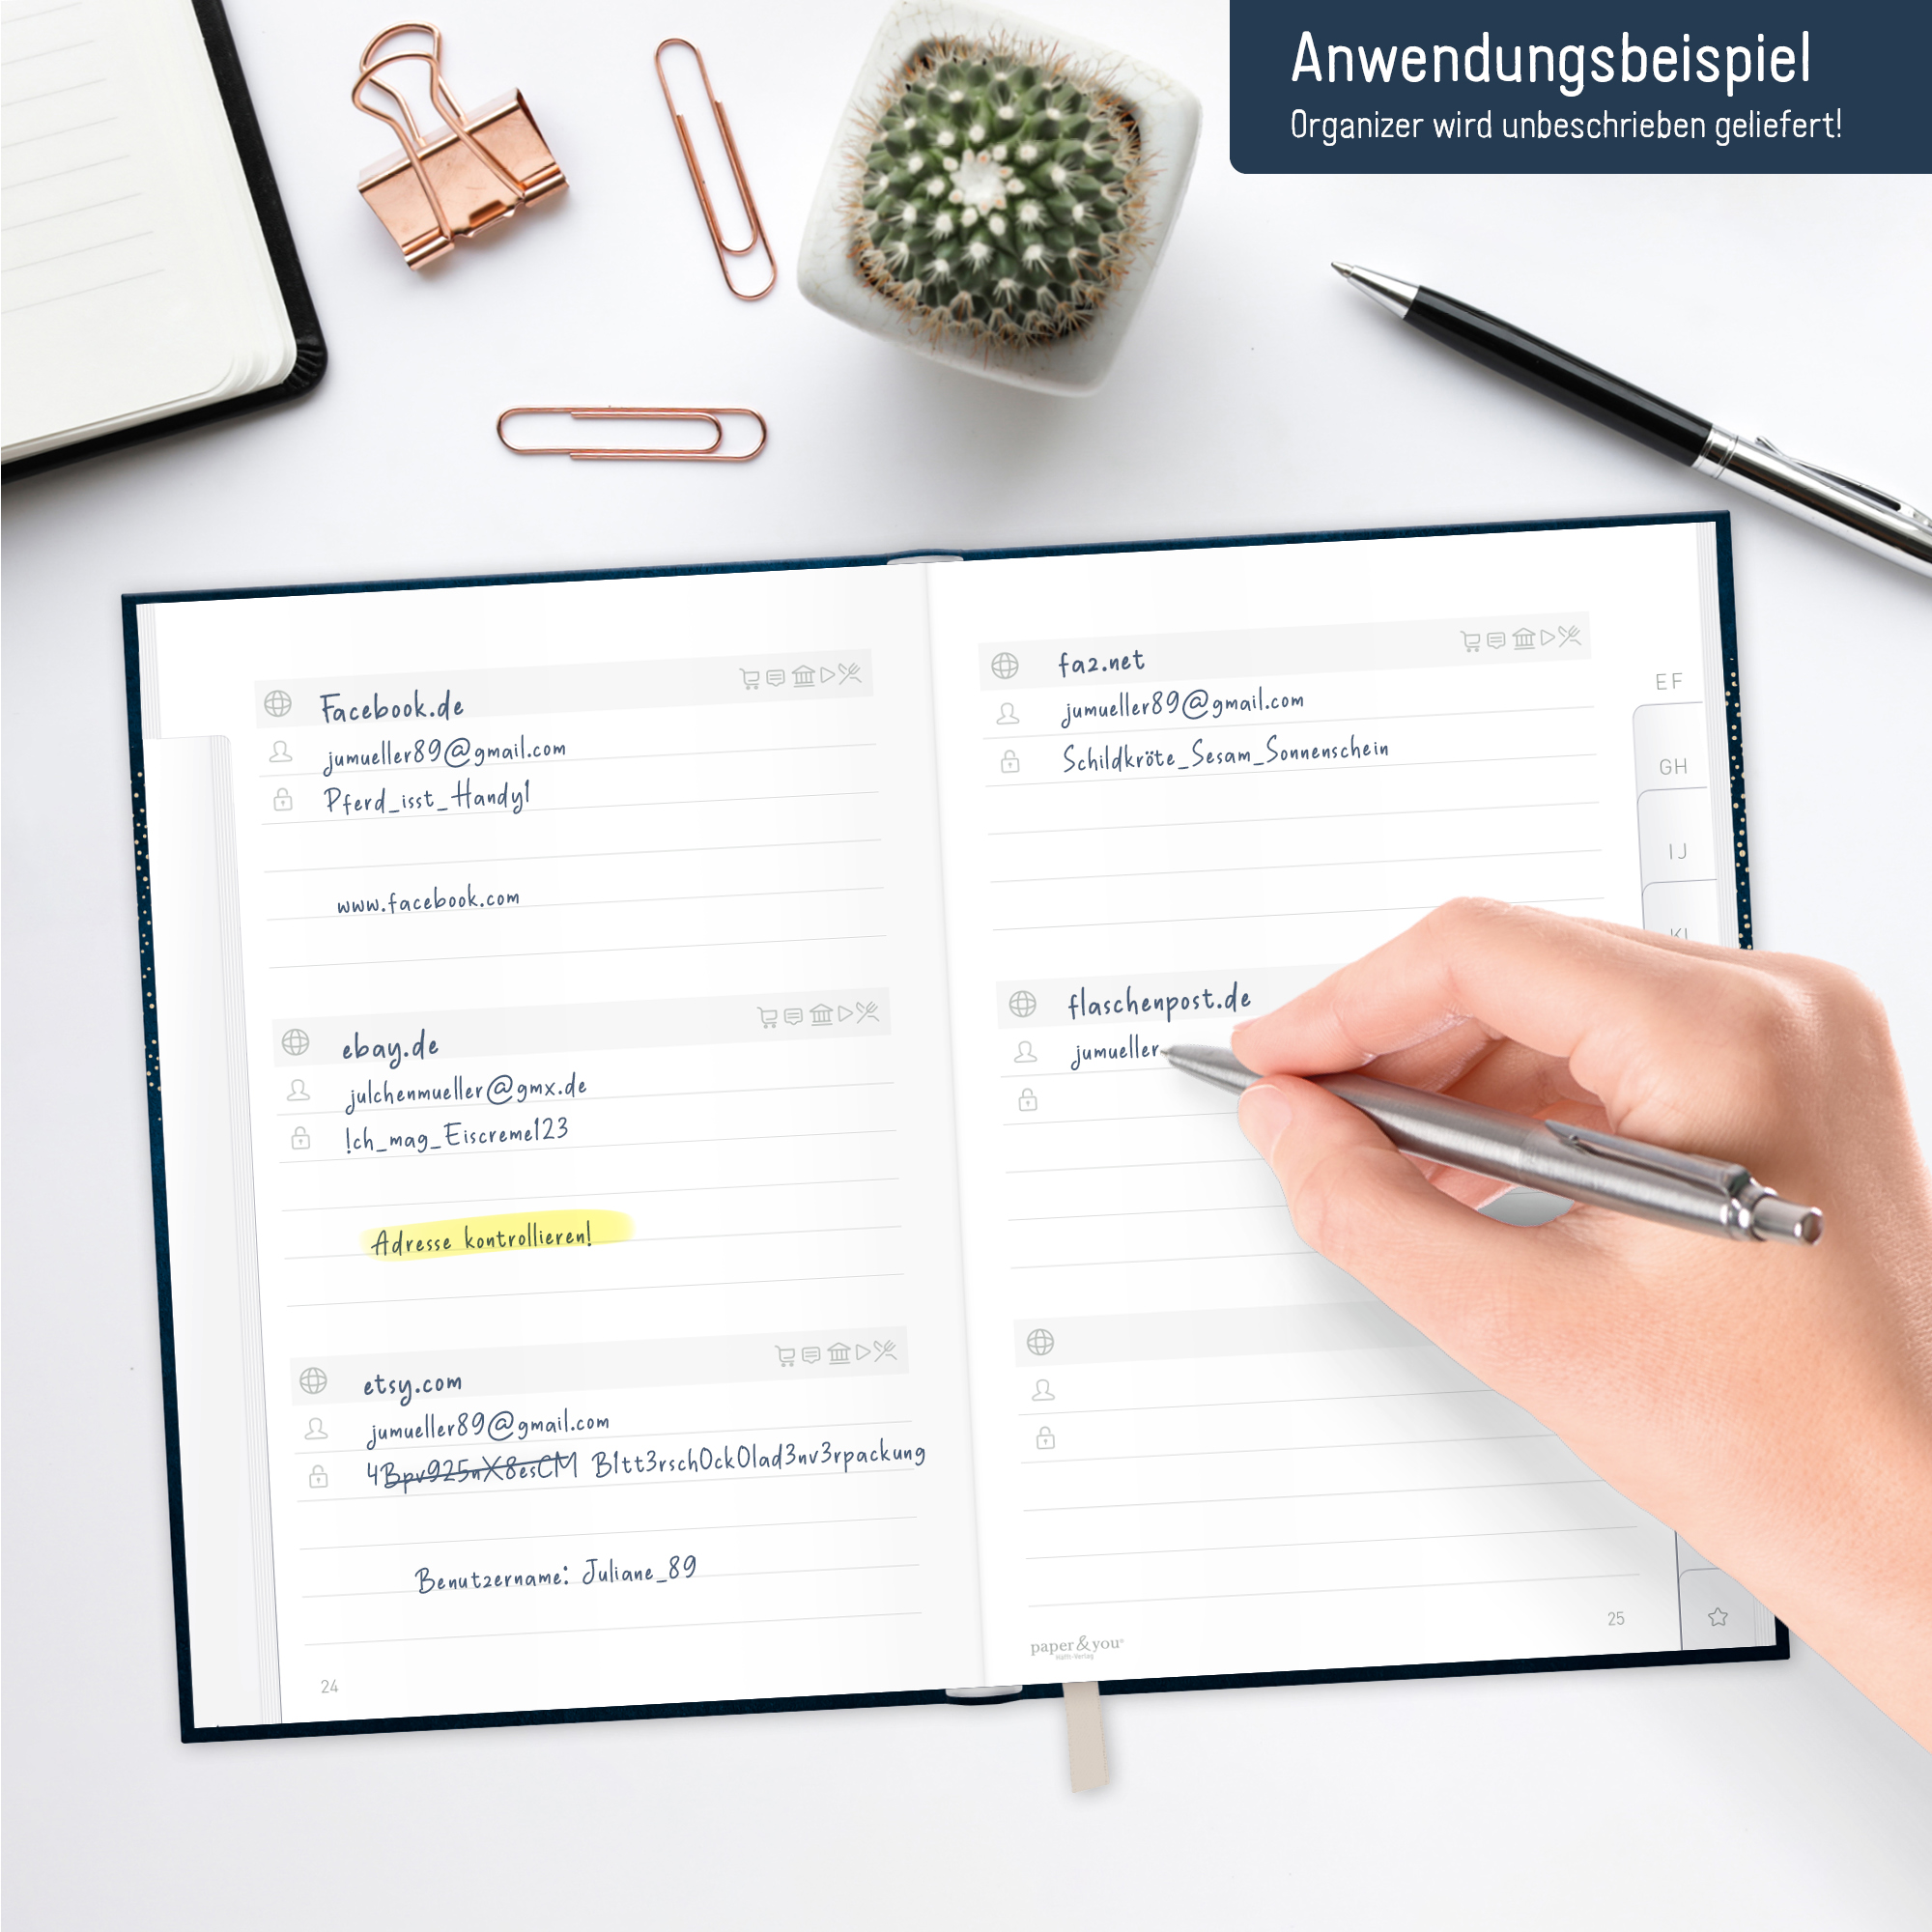 Anwendungsbeispiel
Organizer wird unbeschrieben geliefert!
Facebook.de
jumueller89@gmail.com
Pferd_isst_Handy1
www.facebook.com
ebay.de
julchenmueller@gmx.de
!ch_mag_Eiscreme123
Adresse kontrollieren!
etsy.com
jumueller89@gmail.com
4Bpv925nX8esCM B1tt3rsch0ck0lad3nv3rpackung
Benutzername: Juliane_89
24
faz.net
jumueller89@gmail.com
Schildkröte_Sesam_Sonnenschein
flaschenpost.de
jumueller
paper&you®
Häfft-Verlag
25
EF
GH
IJ